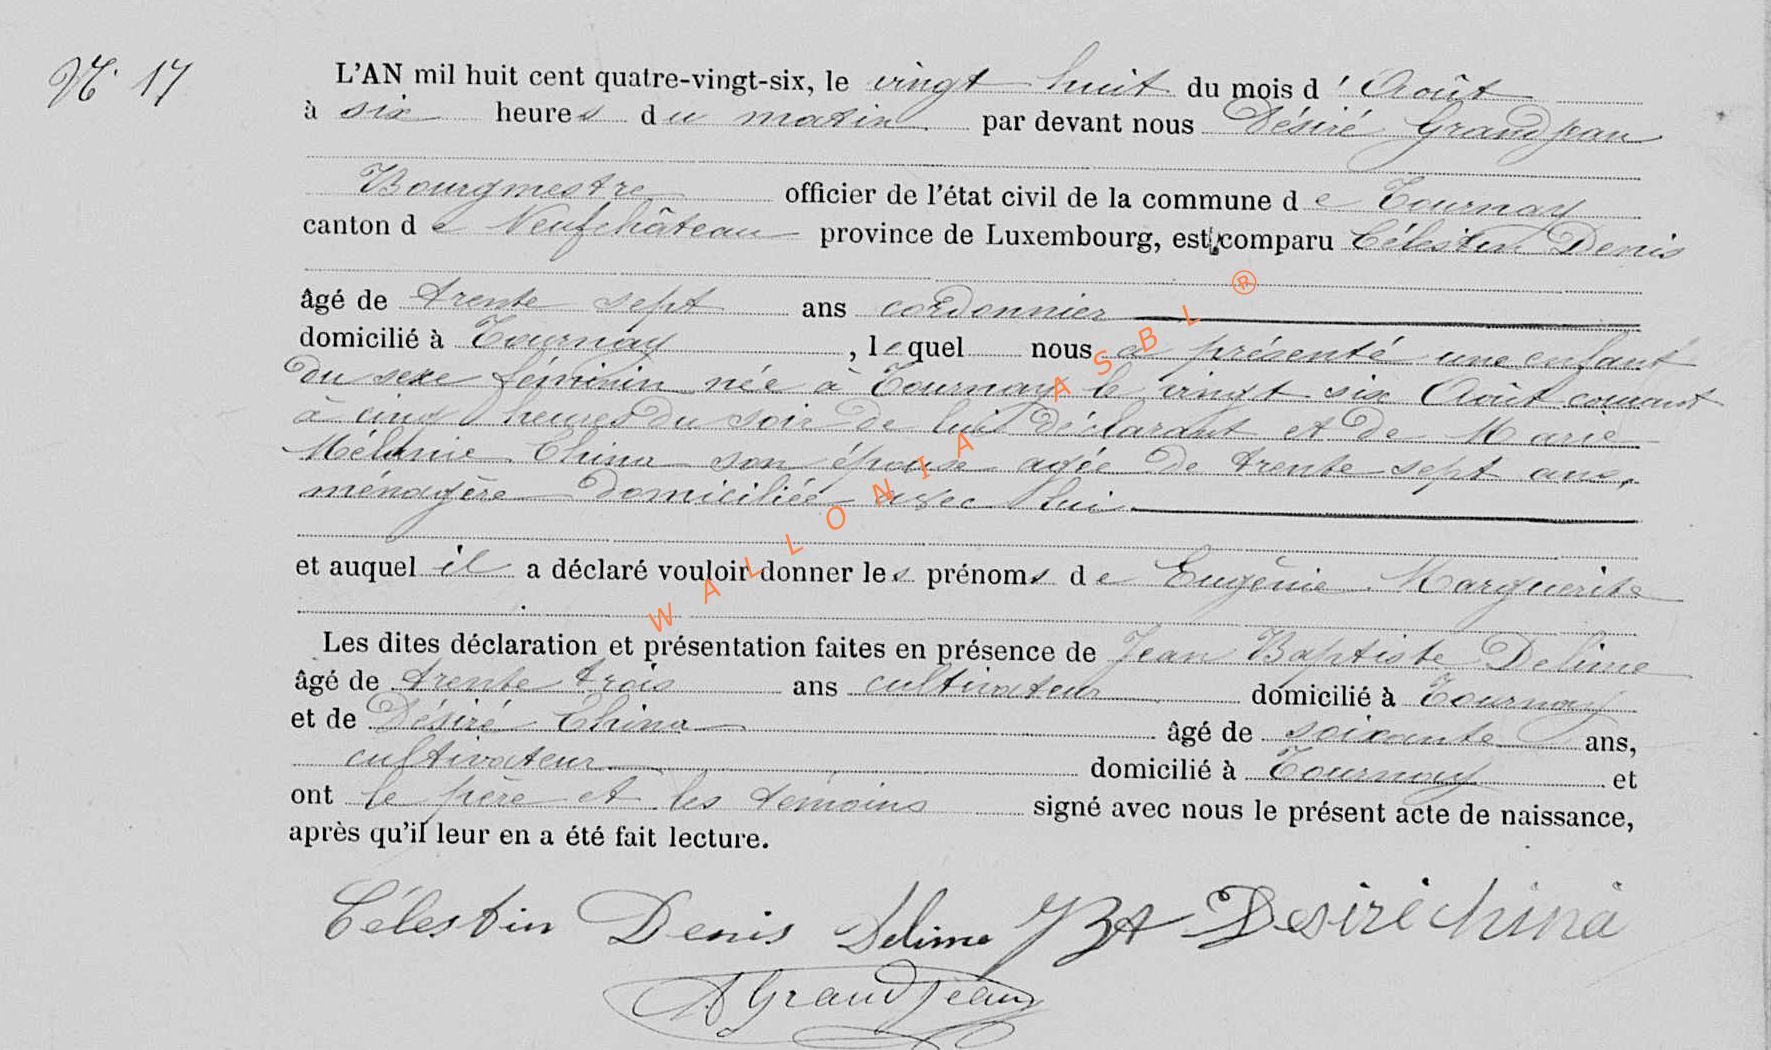 N° 17
L'AN mil huit cent quatre-vingt-six, le vingt huit du mois d'Août
à six heures du matin par devant nous Désiré Grandjean
Bourgmestre officier de l'état civil de la commune de Tournay
canton de Neufchâteau province de Luxembourg, est comparu Célestin Denis
âgé de trente sept ans cordonnier
domicilié à Tournay, lequel nous a présenté une enfant
du sexe féminin née à Tournay le vingt six Août courant
à cinq heures du soir de lui déclarant et de Marie
Mélanie China son épouse agée de trente sept ans,
ménagère domiciliée avec lui.
et auquel il a déclaré vouloir donner les prénoms de Eugénie Marguerite
Les dites déclaration et présentation faites en présence de Jean Baptiste Delime
âgé de trente trois ans cultivateur domicilié à Tournay
et de Désiré China âgé de soixante ans,
cultivateur domicilié à Tournay et
ont le père et les témoins signé avec nous le présent acte de naissance,
après qu'il leur en a été fait lecture.
Célestin Denis Delime JBt Desiré china
D Grandjean
WALLONIA ASBL ®